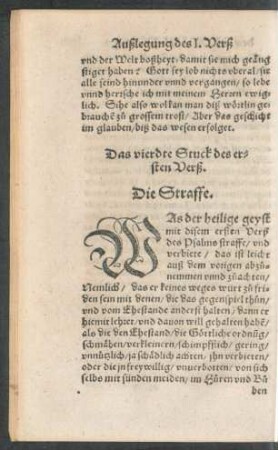 Außlegung des I. Verß
vnd der Welt boßheyt/damit sie mich geäng
stiget haben? Gott sey lob nichts vberal/sie
alle seind hinunder vnnd vergangen/so lebe
vnnd herrsche ich mit meinem Herren ewig-
lich. Sihe also wol kan man diß wörtlin ge
brauchē zu grossem trost/Aber das geschicht
im glauben/biß das wesen erfolget.
Das vierdte Stuck des er-
sten Verß.
Die Straffe.
WAs der heilige geyst
mit disem ersten Verß
des Psalms straffe/vnd
verbiete/das ist leicht
auß dem vorigen abzů-
nemmen vnnd zů achten/
Nemlich/das er keines weges wurt zů fri-
den sein mit denen/die das gegenspiel thůn/
vnd vom Ehestande anderst halten/dann er
hiemit lehret/vnd dauon will gehalten habē/
als die den Ehestand/die Göttlich ordnūg/
schmähen/verkleinern/schimpfflich/gering/
vnnützlich/ja schädlich achten/jhn verbieten/
oder die jn freywillig/vnuerbotten/von sich
selbs mit sünden meiden/im Hůren vnd Bů
ben